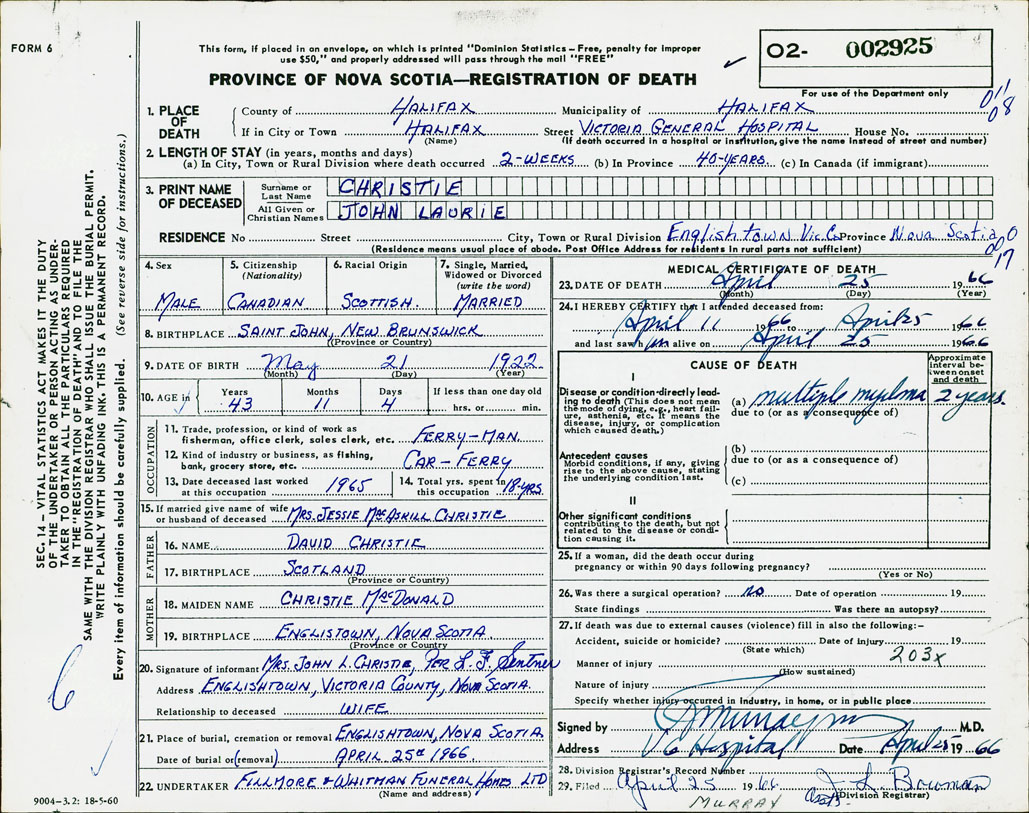 FORM 6
This form, if placed in an envelope, on which is printed "Dominion Statistics – Free, penalty for improper
use $50," and properly addressed will pass through the mail "FREE"
PROVINCE OF NOVA SCOTIA—REGISTRATION OF DEATH
O2- 002925
For use of the Department only
011
08
1. PLACE OF DEATH
County of HALIFAX Municipality of HALIFAX
If in City or Town HALIFAX Street VICTORIA GENERAL HOSPITAL House No.
(Name) (If death occurred in a hospital or institution, give the name instead of street and number)
2. LENGTH OF STAY (in years, months and days)
(a) In City, Town or Rural Division where death occurred 2-WEEKS (b) In Province 40-YEARS (c) In Canada (if immigrant)
3. PRINT NAME OF DECEASED
Surname or Last Name CHRISTIE
All Given or Christian Names JOHN LAURIE
RESIDENCE No Street City, Town or Rural Division Englishtown Vic. Co Province Nova Scotia
(Residence means usual place of abode. Post Office Address for residents in rural parts not sufficient)
00
17
4. Sex MALE
5. Citizenship (Nationality) CANADIAN
6. Racial Origin SCOTTISH.
7. Single, Married, Widowed or Divorced (write the word) MARRIED
8. BIRTHPLACE SAINT JOHN, NEW BRUNSWICK
(Province or Country)
9. DATE OF BIRTH May 21 1922
(Month) (Day) (Year)
10. AGE in Years 43 Months 11 Days 4 If less than one day old hrs. or min.
OCCUPATION
11. Trade, profession, or kind of work as
fisherman, office clerk, sales clerk, etc. FERRY-MAN.
12. Kind of industry or business, as fishing,
bank, grocery store, etc. CAR-FERRY
13. Date deceased last worked
at this occupation 1965
14. Total yrs. spent in
this occupation 18-YRS.
15. If married give name of wife
or husband of deceased MRS. JESSIE MACASKILL CHRISTIE
FATHER
16. NAME DAVID CHRISTIE
17. BIRTHPLACE SCOTLAND
(Province or Country)
MOTHER
18. MAIDEN NAME CHRISTIE MACDONALD
19. BIRTHPLACE ENGLISTOWN, NOVA SCOTIA.
(Province or Country)
20. Signature of informant MRS. JOHN L. CHRISTIE, PER L. F. Sentner
Address ENGLISHTOWN, VICTORIA COUNTY, NOVA SCOTIA.
Relationship to deceased WIFE
21. Place of burial, cremation or removal ENGLISHTOWN, NOVA SCOTIA
Date of burial or (removal) APRIL 25th 1966
22. UNDERTAKER FILLMORE & WHITMAN FUNERAL HOMES LTD
(Name and address)
MEDICAL CERTIFICATE OF DEATH
23. DATE OF DEATH April 25 1966
(Month) (Day) (Year)
24. I HEREBY CERTIFY that I attended deceased from:
April 11 1966 to April 25 1966
and last saw him alive on April 25 1966
CAUSE OF DEATH
Approximate interval between onset and death
I
Disease or condition directly leading to death (This does not mean the mode of dying, e.g., heart failure, asthenia, etc. It means the disease, injury, or complication which caused death.)
(a) multiple myeloma 2 years.
due to (or as a consequence of)
Antecedent causes
Morbid conditions, if any, giving rise to the above cause, stating the underlying condition last.
(b)
due to (or as a consequence of)
(c)
II
Other significant conditions
contributing to the death, but not related to the disease or condition causing it.
25. If a woman, did the death occur during
pregnancy or within 90 days following pregnancy?
(Yes or No)
26. Was there a surgical operation? no Date of operation 19
State findings Was there an autopsy?
27. If death was due to external causes (violence) fill in also the following:–
Accident, suicide or homicide? Date of injury 19
(State which)
203X
Manner of injury
(How sustained)
Nature of injury
Specify whether injury occurred in industry, in home, or in public place
Signed by M.D.
Address VG Hospital Date April 25 1966
28. Division Registrar's Record Number
29. Filed April 25 1966 J. L. Bowman
(Division Registrar)
MURRAY
SEC. 14 – VITAL STATISTICS ACT MAKES IT THE DUTY
OF THE UNDERTAKER OR PERSON ACTING AS UNDER-
TAKER TO OBTAIN ALL THE PARTICULARS REQUIRED
IN THE "REGISTRATION OF DEATH" AND TO FILE THE
SAME WITH THE DIVISION REGISTRAR WHO SHALL ISSUE THE BURIAL PERMIT.
WRITE PLAINLY WITH UNFADING INK. THIS IS A PERMANENT RECORD.
Every item of information should be carefully supplied. (See reverse side for instructions.)
6
9004-3.2: 18-5-60